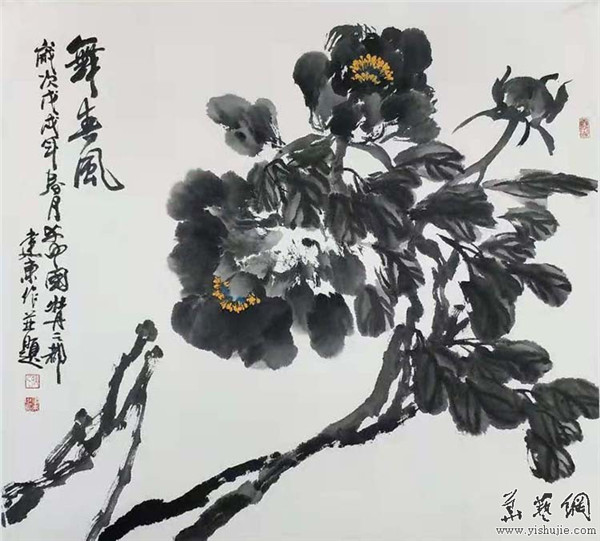 舞春风
歲次戊戌年春月於中國牡丹之都
建東作並題
華藝網
www.yishujie.com